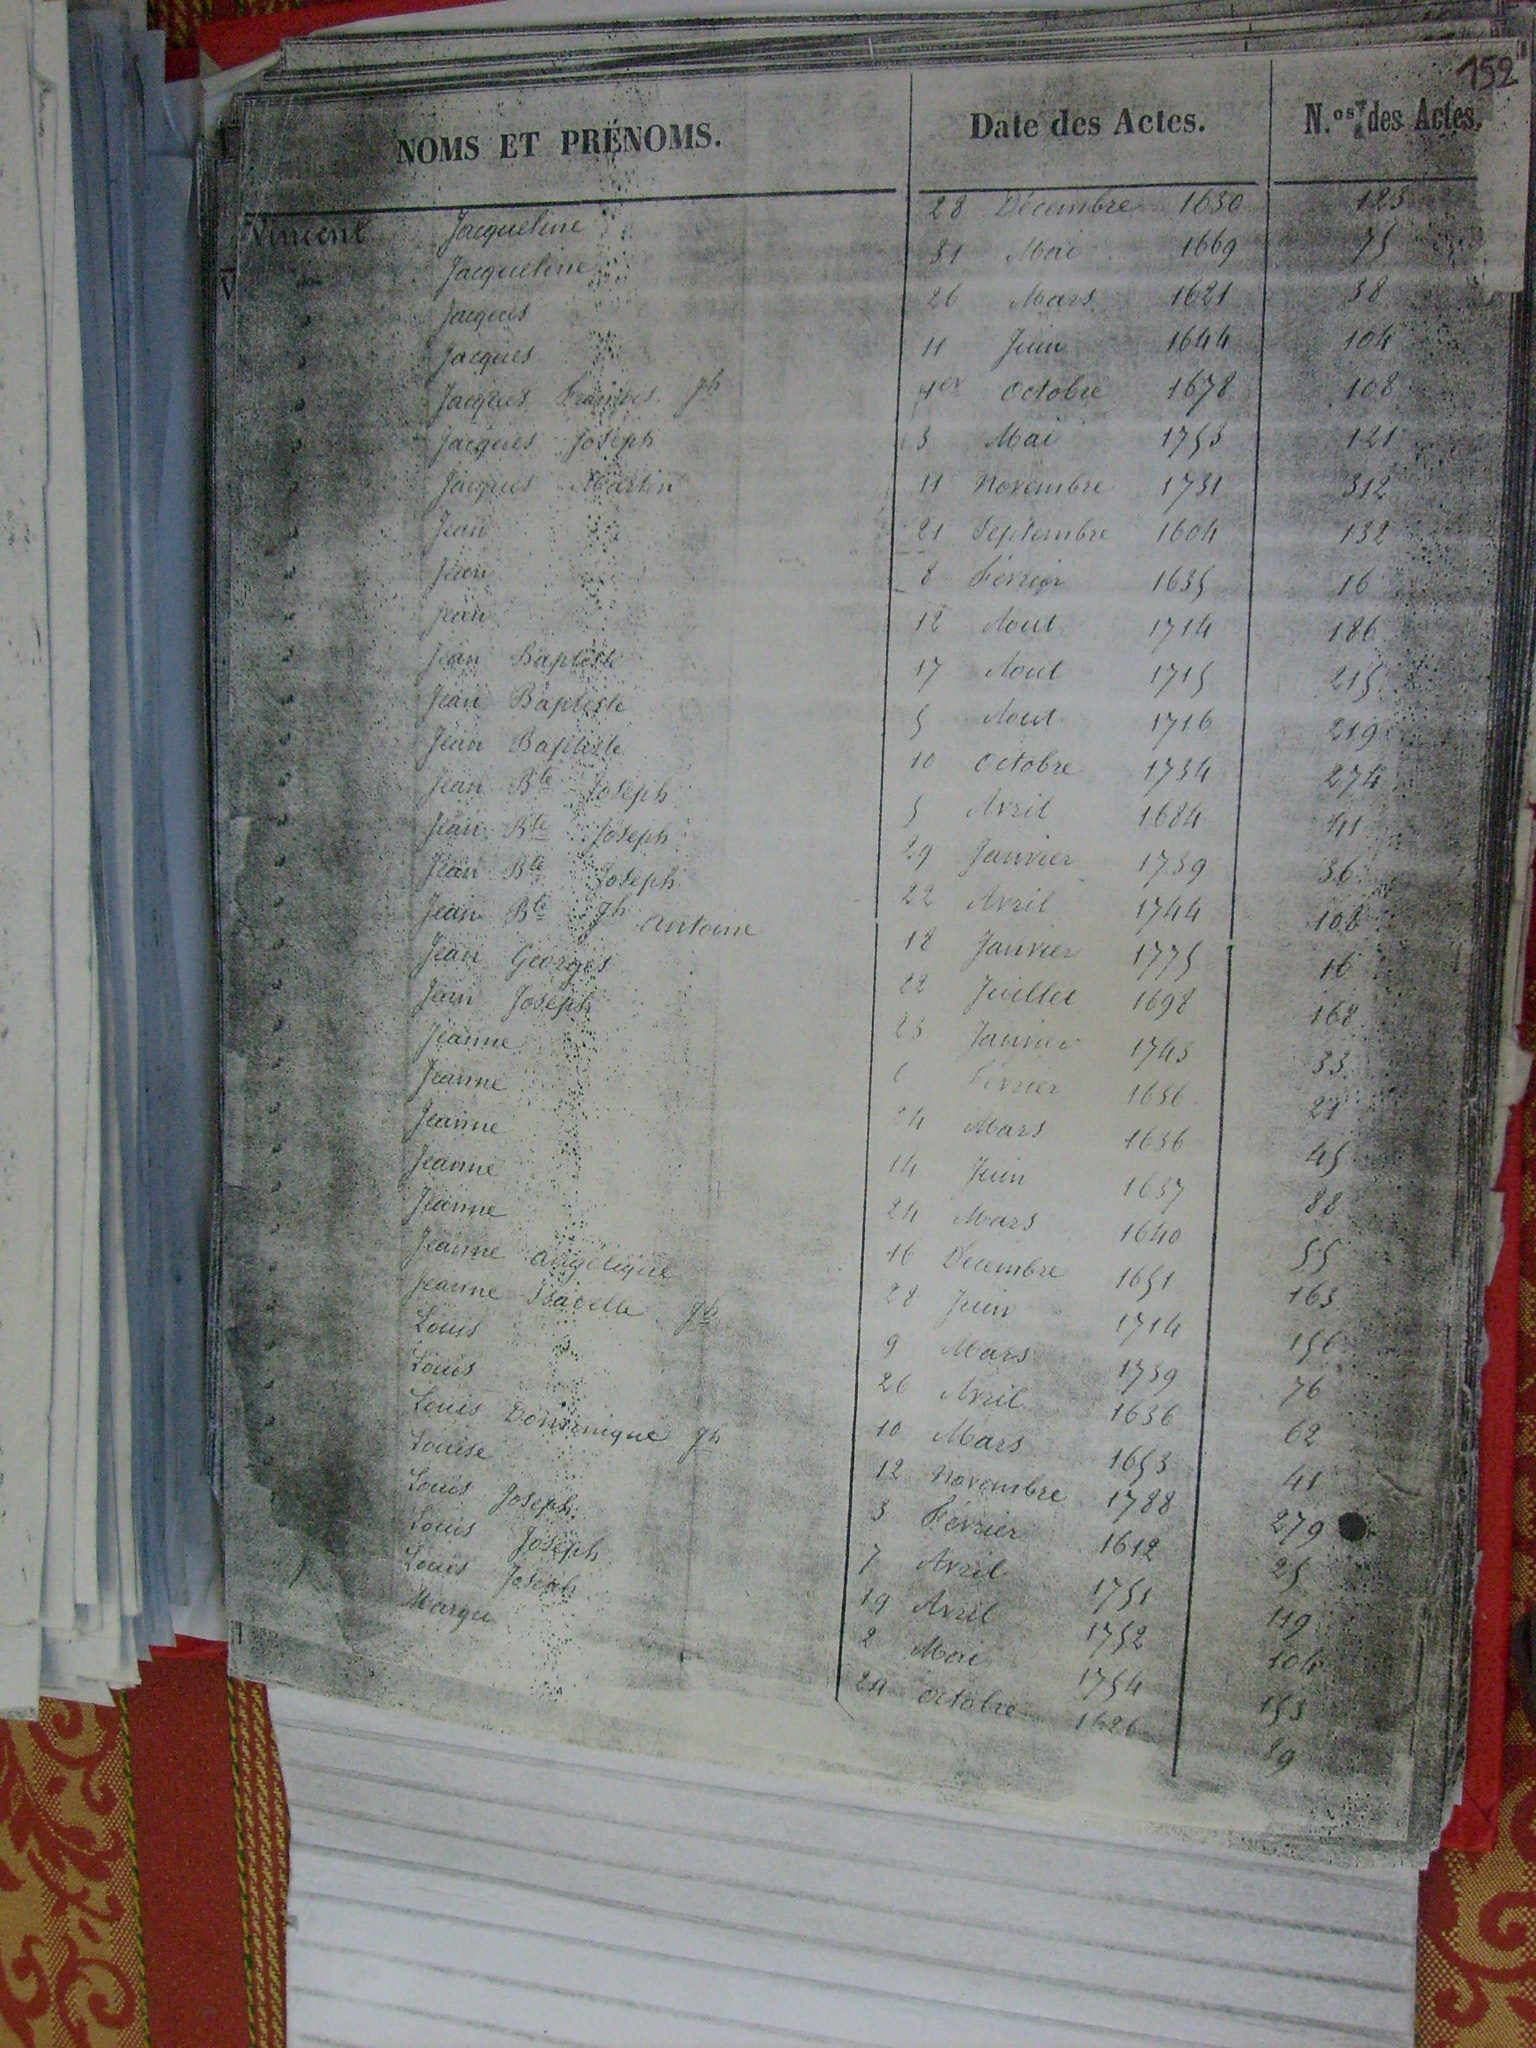 152
NOMS ET PRÉNOMS. Date des Actes. N.os des Actes.
Vincent Jacqueline 28 Décembre 1630 123
" Jacqueline 31 Mai 1669 75
" Jacques 26 Mars 1621 38
" Jacques 11 Juin 1644 104
" Jacques François Jh 1er Octobre 1678 108
" Jacques Joseph 3 Mai 1753 121
" Jacques Martin 11 Novembre 1731 312
" Jean 21 Septembre 1604 132
" Jean 8 Février 1635 16
" Jean 12 Aout 1714 186
" Jean Baptiste 17 Aout 1715 215
" Jean Baptiste 5 Aout 1716 219
" Jean Baptiste 10 Octobre 1734 274
" Jean Bte Joseph 5 Avril 1684 41
" Jean Bte Joseph 29 Janvier 1739 36
" Jean Bte Joseph 22 Avril 1744 108
" Jean Bte Jh Antoine 18 Janvier 1775 16
" Jean Georges 22 Juillet 1698 168
" Jean Joseph 23 Janvier 1743 33
" Jeanne Février 1636 21
" Jeanne 24 Mars 1636 45
" Jeanne 14 Juin 1637 88
" Jeanne 24 Mars 1640 55
" Jeanne 16 Décembre 1651 163
" Jeanne Angélique 28 Juin 1714 156
" Jeanne Isabelle Jh 9 Mars 1739 76
" Louis 26 Avril 1636 62
" Louis 10 Mars 1653 41
" Louis Dominique Jh 12 Novembre 1788 279
" Louise 3 Février 1612 25
" Louis Joseph 7 Avril 1751 119
" Louis Joseph 19 Avril 1752 104
" Louis Joseph 2 Mai 1754 153
" Margu 24 Octobre 1626 89